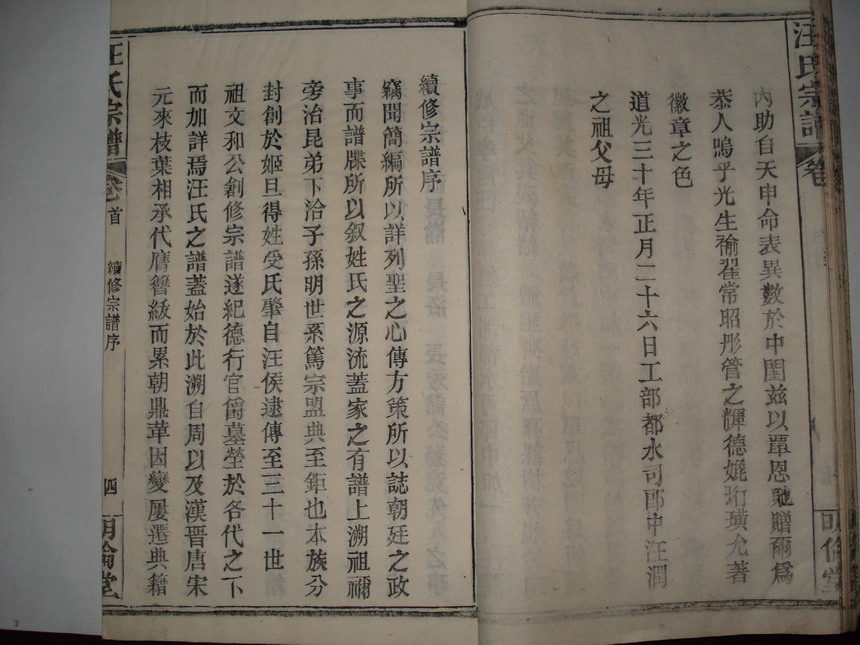 汪氏宗譜
卷
明倫堂
內助自天申命表異數於中閨玆以覃恩馳贈爾爲
恭人嗚乎光生褕翟常昭彤管之輝德嬈珩璜允著
徽章之色
道光三十年正月二十六日工部都水司郎中汪潤
之祖父母
續修宗譜序
竊聞簡編所以詳列聖之心傳方策所以誌朝廷之政
事而譜牒所以叙姓氏之源流蓋家之有譜上溯祖禰
旁治昆弟下洽子孫明世系篤宗盟典至鉅也本族分
封創於姬旦得姓受氏肇自汪侯逮傳至三十一世
祖文和公創修宗譜遂紀德行官爵墓塋於各代之下
而加詳焉汪氏之譜蓋始於此溯自周以及漢晉唐宋
元來枝葉相承代膺簪紱而累朝鼎革因變屢遷典籍
汪氏宗譜
卷首
續修宗譜序
四
明倫堂